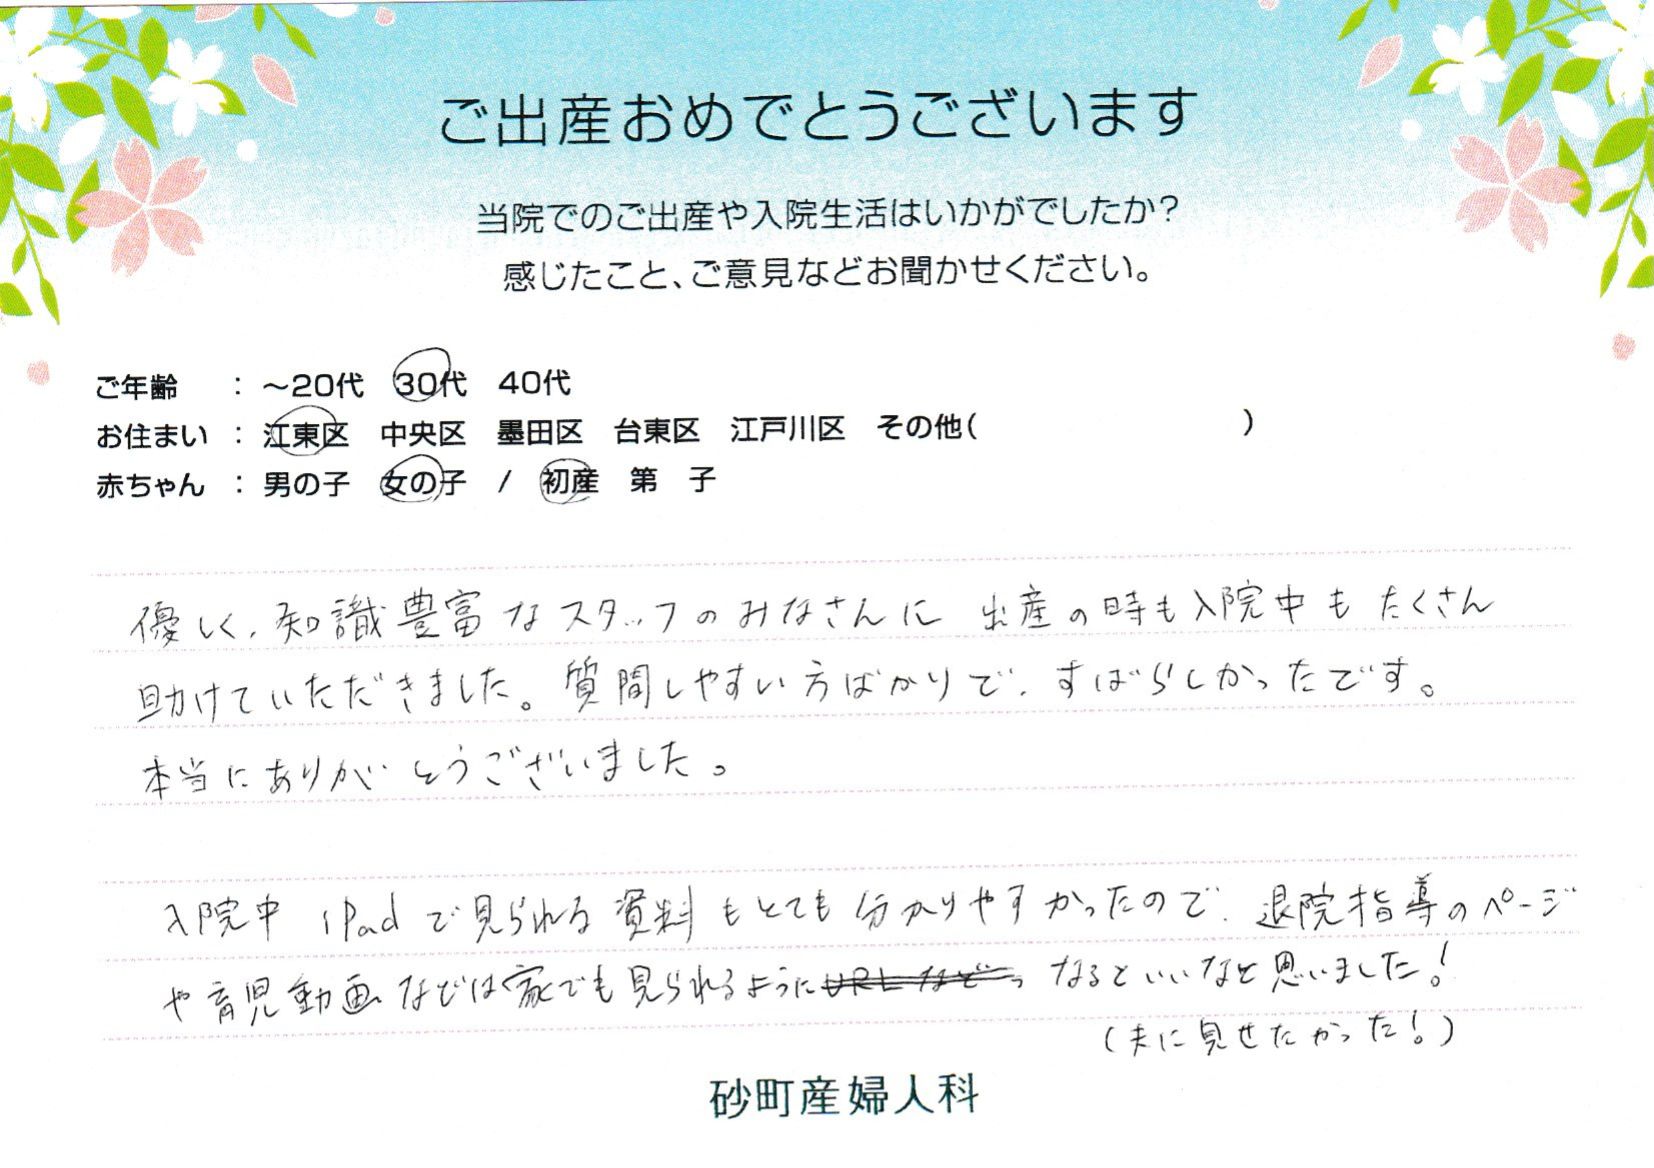 ご出産おめでとうございます
当院でのご出産や入院生活はいかがでしたか?
感じたこと、ご意見などお聞かせください。
ご年齢 : ～20代 30代 40代
お住まい : 江東区 中央区 墨田区 台東区 江戸川区 その他( )
赤ちゃん : 男の子 女の子 / 初産 第 子
優しく、知識豊富なスタッフのみなさんに 出産の時も入院中もたくさん
助けていただきました。質問しやすい方ばかりで、すばらしかったです。
本当にありがとうございました。
入院中 iPadで見られる資料もとても分かりやすかったので、退院指導のページ
や育児動画などは家でも見られるようにURLなど なるといいなと思いました!
(夫に見せたかった!)
砂町産婦人科